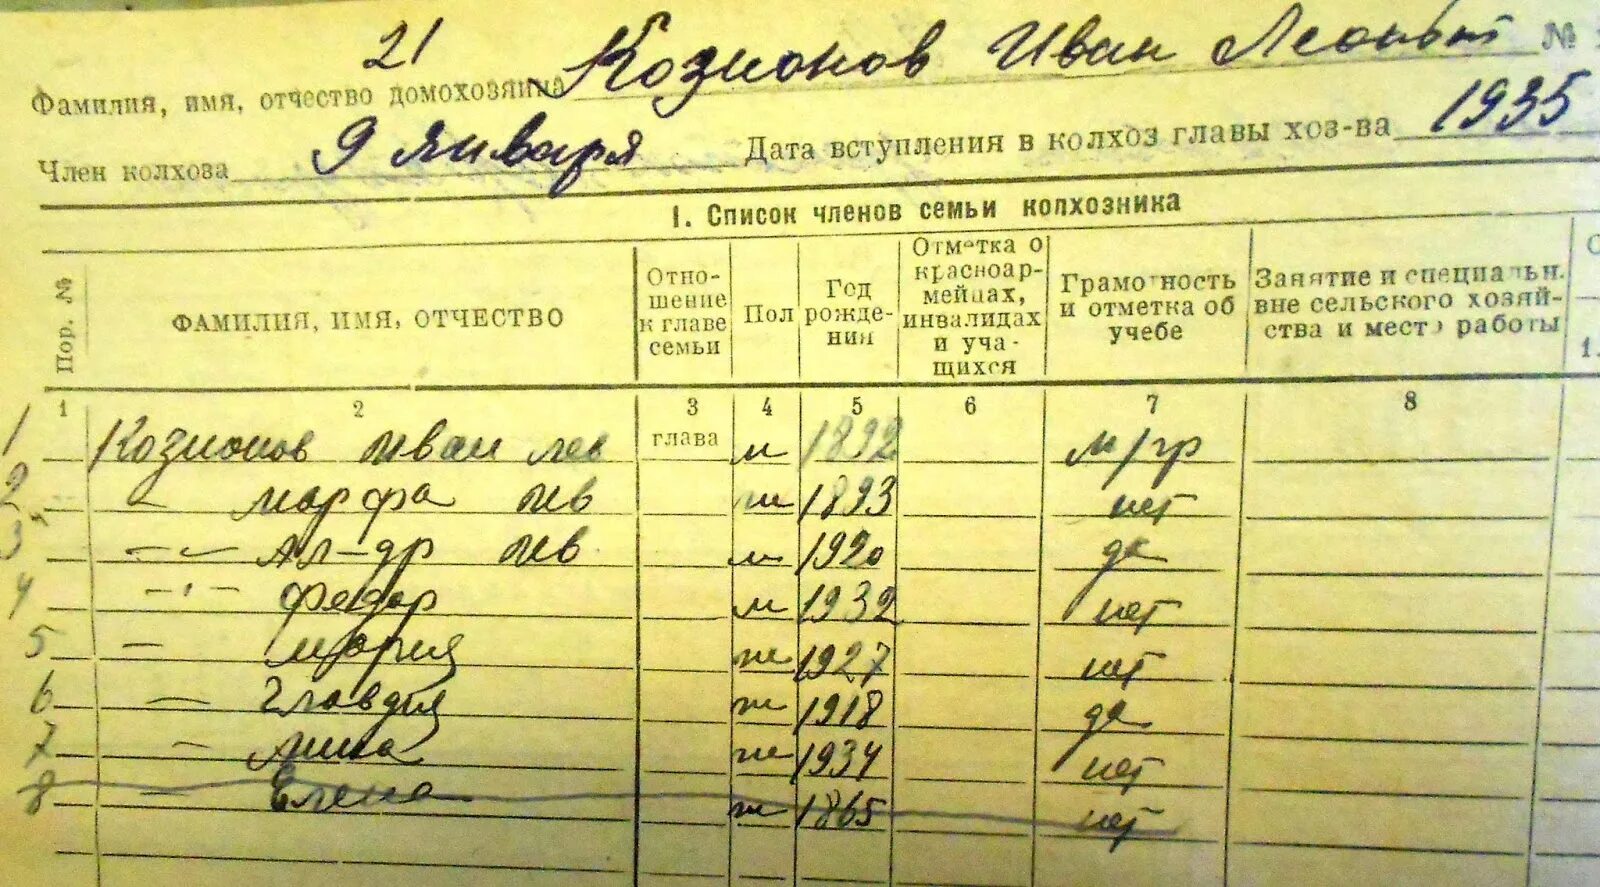 21
Фамилия, имя, отчество домохозяина Козионов Иван Леонт №
Член колхоза 9 Января Дата вступления в колхоз главы хоз-ва 1935
I. Список членов семьи колхозника
Пор. № ФАМИЛИЯ, ИМЯ, ОТЧЕСТВО Отношение к главе семьи Пол Год рождения Отметка о красноармейцах, инвалидах и учащихся Грамотность и отметка об учебе Занятие и специальн. вне сельского хозяйства и место работы
1 2 3 4 5 6 7 8
1 Козионов Иван Лев глава м 1892 м/гр
2 - Марфа Ив ж 1893 нет
3 - - Ал-др Ив. м 1920 да
4 - " - Федор м 1932 нет
5 - Мария ж 1927 нет
6 - Клавдия ж 1918 да
7 - Нина ж 1934 нет
8 - Елена ж 1865 нет